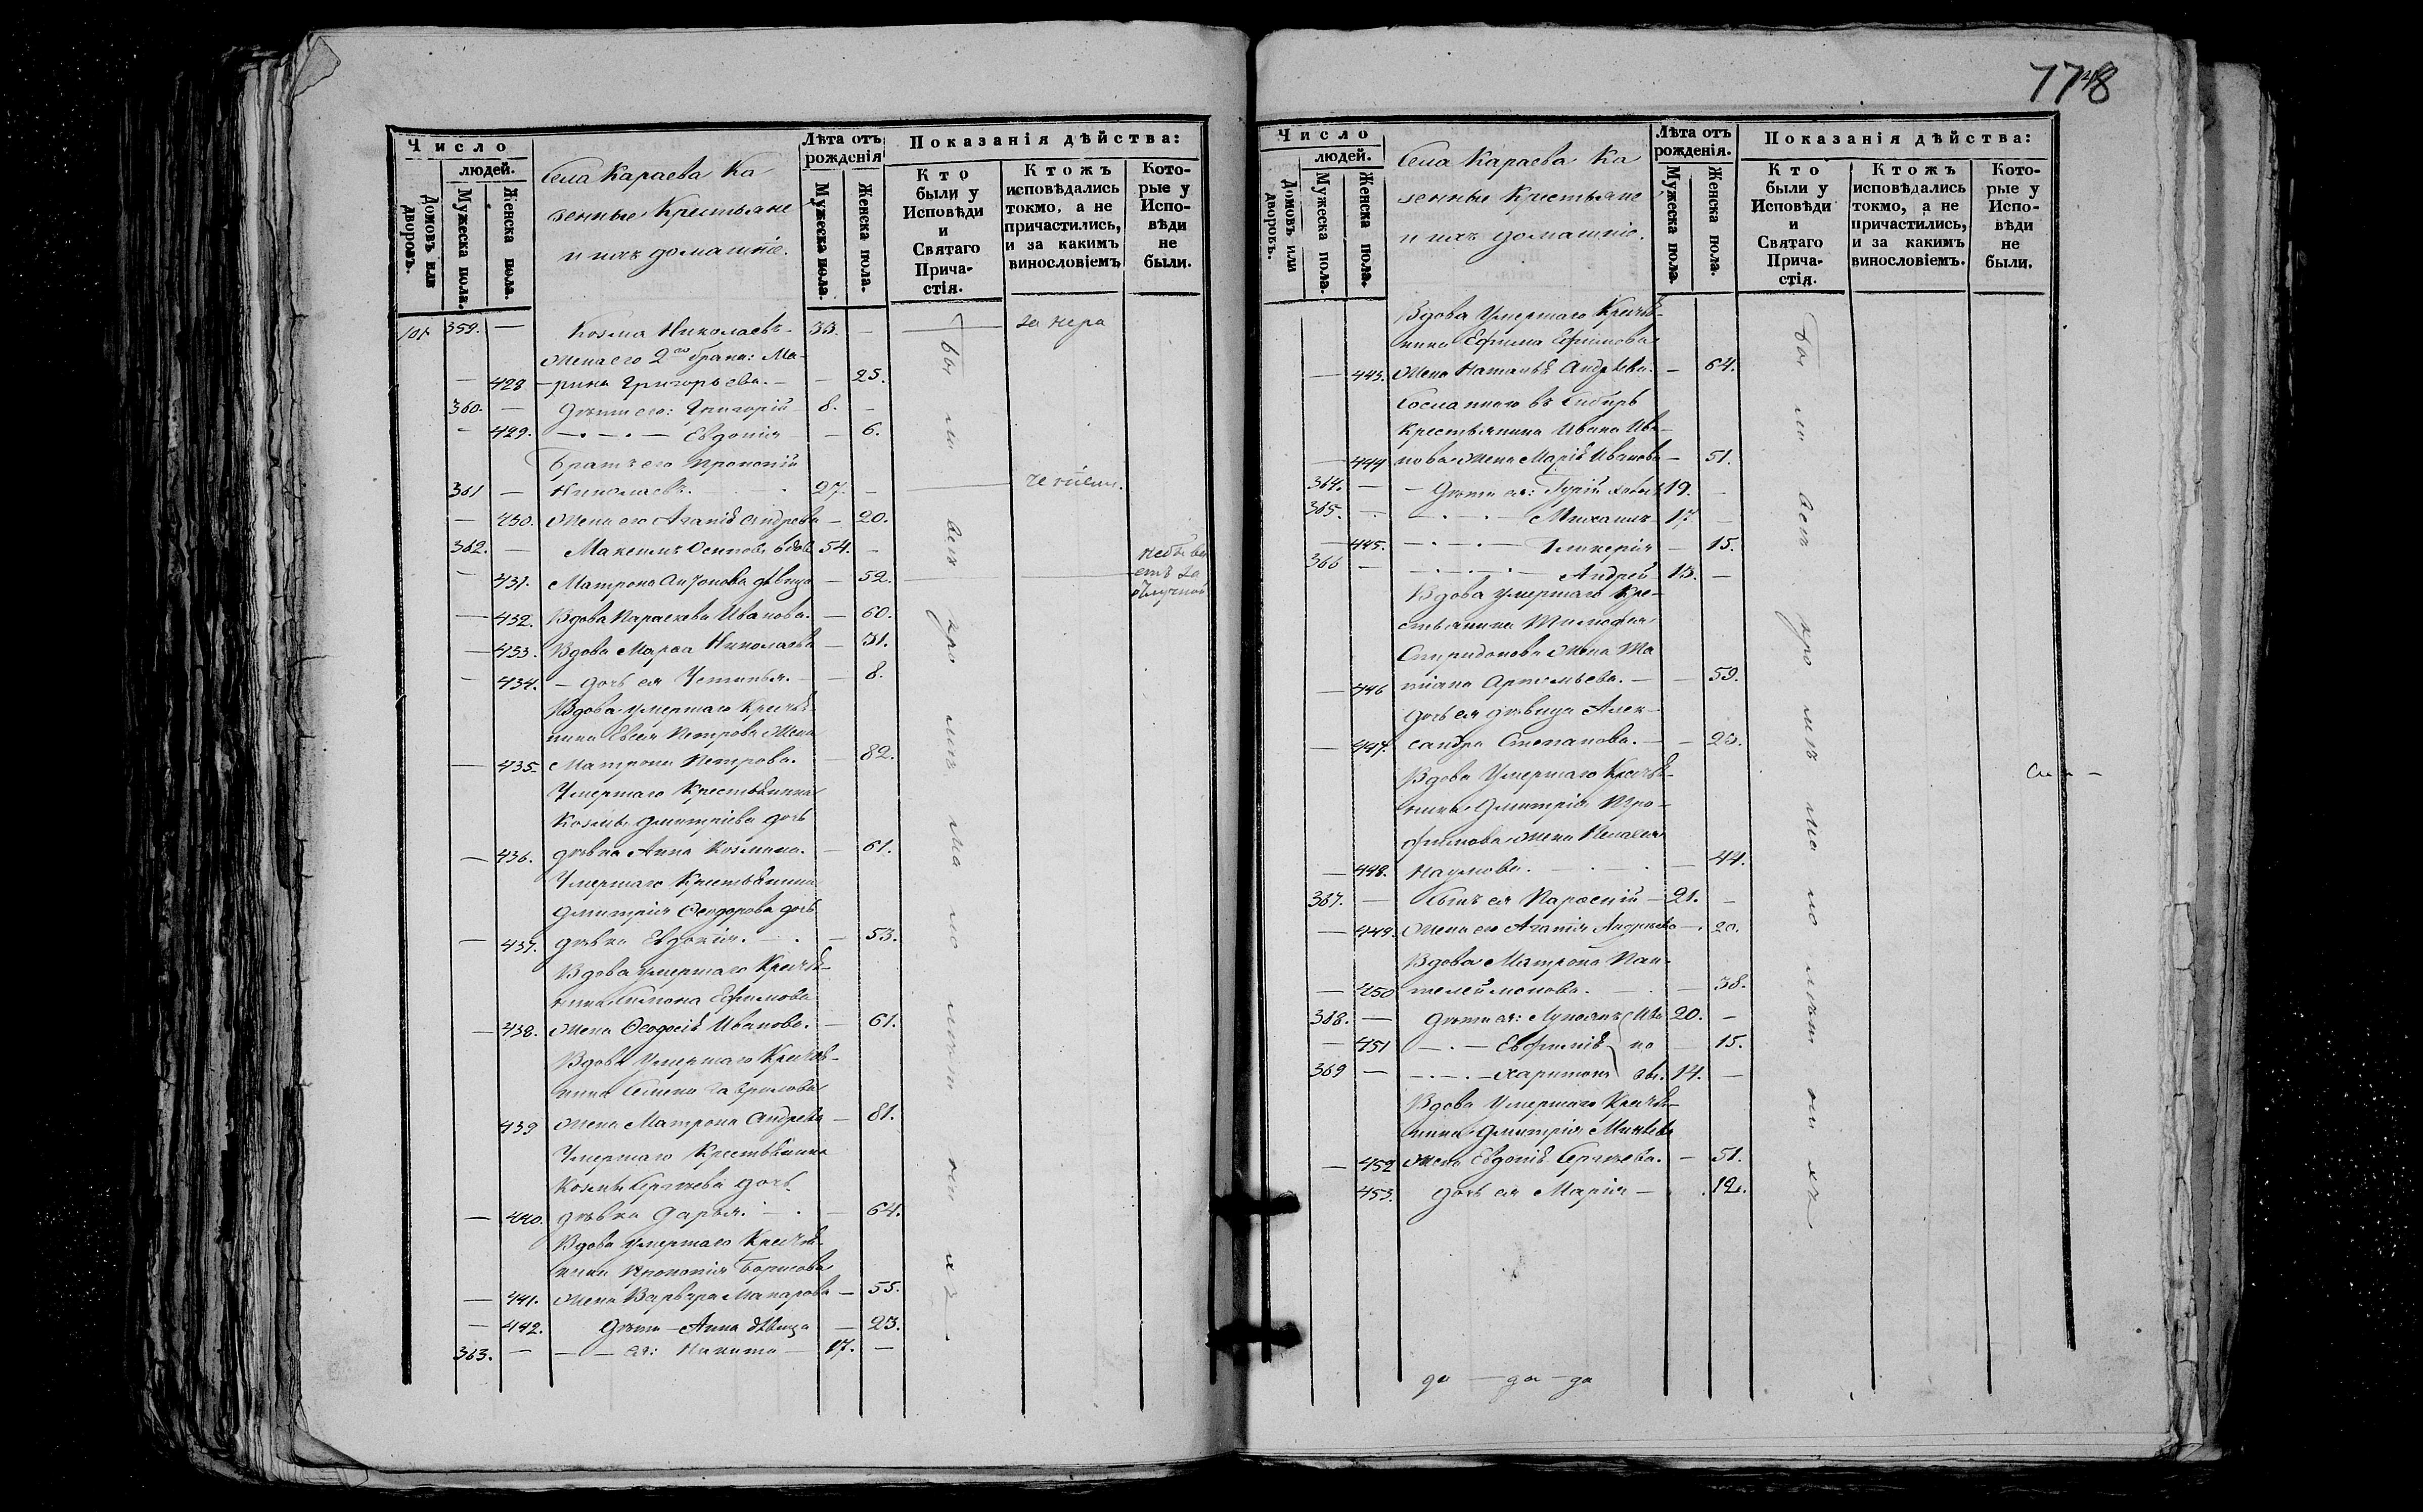 7748
Число
людей.
Домовъ или дворовъ.
Мужеска пола.
Женска пола.
Села Караева Ка
зенные Крестьяне
и ихъ домашніе.
Лѣта отъ рожденія
Мужеска пола.
Женска пола.
Показанія дѣйства:
Кто были у Исповѣди и Святаго Прича-стія.
Ктожъ исповѣдались токмо, а не причастились, и за какимъ винословіемъ
Кото-рые у Испо-вѣди не были.
101 359. — Козма Николаевъ 33. — за нера
Жена его 2го брака: Ма-
— 428 рина Григорьева. — 25.
360. — Дѣти его: Григорій 8. —
— 429. Евдокія — 6.
Братъ его Прокопій
361 — Николаевъ. 27. — чениемъ.
— 430. Жена его Агапіѣ Андрева — 20.
362. — Максимъ Осиповъ вдов 54. —
— 431. Матрона Антонова дѣвица — 52.
— 432. Вдова Параскева Иванова. — 60.
— 433. Вдова Марѳа Николаева — 31.
— 434. — дочь ея Устинья. — 8.
Вдова умершаго Крестья-
нина Евсея Петрова Жена
— 435. Матрона Петрова. — 82.
Умершаго Крестьянина
Козмы Дмитріева дочь
— 436. дѣвка Анна Козмина. — 61.
Умершаго Крестьянина
Дмитрія Ѳеодорова дочь
— 437. дѣвка Евдокія. — 53.
Вдова умершаго Крестья-
нина Симона Ефимова
— 438. Жена Ѳеодосіѣ Иванова. — 61.
Вдова Умершаго Крестья-
нина Семена Гаврилова
439 Жена Матрона Андрева — 81.
Умершаго Крестьянина
Козмы Сергѣева дочь
— 440. дѣвка Дарья. — 64.
Вдова умершаго Крестья-
нина Прокопія Борисова
— 441. Жена Варвара Макарова — 55.
— 442. Дѣти — Анна дѣвица — 23.
363. — ея: Никита — 17. —
Число
людей.
Домовъ или дворовъ.
Мужеска пола.
Женска пола.
Села Караева Ка
зенные Крестьяне
и ихъ домашніе.
Лѣта отъ рожденія.
Мужеска пола.
Женска пола.
Показанія дѣйства:
Кто были у Исповѣди и Святаго Прича-стія.
Ктожъ исповѣдались токмо, а не причастились, и за какимъ винословіемъ.
Кото-рые у Испо-вѣди не были.
Вдова Умершаго Крестья-
нина Ефима Ефимова
— 443. Жена Наталья Андрѣева. — 64.
Сосланнаго въ Сибирь
Крестьянина Ивана Ива-
— 444 нова Жена Маріѣ Иванова — 51.
364. — Дѣти ея: Гурій 19. —
365. — Михаилъ 17 —
— 445. Гликерія — 15.
366 — Андрей 13. —
Вдова умершаго Кре-
стьянина Тимофея
Спиридонова Жена Та
— 446 тіана Артемьева. — 59.
дочь ея дѣвица Алек-
— 447. сандра Степанова. — 23.
Вдова Умершаго Крестья-
нина Дмитрія Тро-
фимова Жена Пелагея
— 448. Наумова. — 44.
367. — Сынъ ея Парѳеній 21. —
— 449. Жена его Агапія Андреева — 20.
Вдова Матрона Пан-
— 450 телеймонова. — 38.
368. — Дѣти ея: Лукіянъ Ива 20. —
— 451 Евфиміѣ но — 15.
369 — Харитонъ вы. 14. —
Вдова Умершаго Крестья-
нина Дмитрія Минѣева
— 452 Жена Евдокіѣ Сергѣева. — 51.
453. дочь ея Марія — 12.